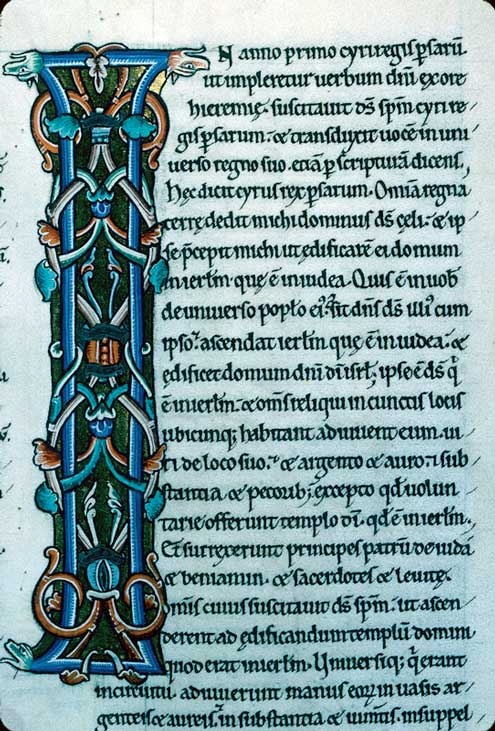 IN anno primo cyri regis psarū
ut impleretur verbum dn̄i ex ore
hieremie. suscitavit ds̄ spm̄ cyri re-
gis psarum. & transduxit vocē in uni-
verso regno suo. etiā p scripturā dicens,
hęc dicit cyrus rex psarum. Om̄ia regna
terrę dedit michi dominus ds̄ cęli. & ip-
se p̄cepit michi ut ędificarē ei domum
in ierl̄m que ē in iudea. Quis ē in vob̄
de universo poplo ei᷒. sit dn̄s ds̄ illi᷒ cum
ipso. ascendat ierl̄m quę ē in iudea. &
ędificet domum dn̄i dī isrl̄, ipse ē ds̄ q̇
ē in ierl̄m. & om̄s reliqui in cunctis locis
ubicunq; habitant adiuvent eum. vi-
ri de loco suo. & argento & auro. & sub-
stantia & pecorib; excepto qd̄ volun-
tarie offerunt templo dī. qd̄ ē in ierl̄m.
Et surrexerunt principes patrū de iudā
& beniamin. & sacerdotes & levitę.
& om̄is cuius suscitavit ds̄ spm̄. ut ascen-
derent ad ędificandum templū domini
quod erat in ierl̄m. Universiq; q̇ erant
in circuitu adiuverunt manus eorꝝ in vasis ar-
genteis & aureis. in substantia & iumtis. in suppel-